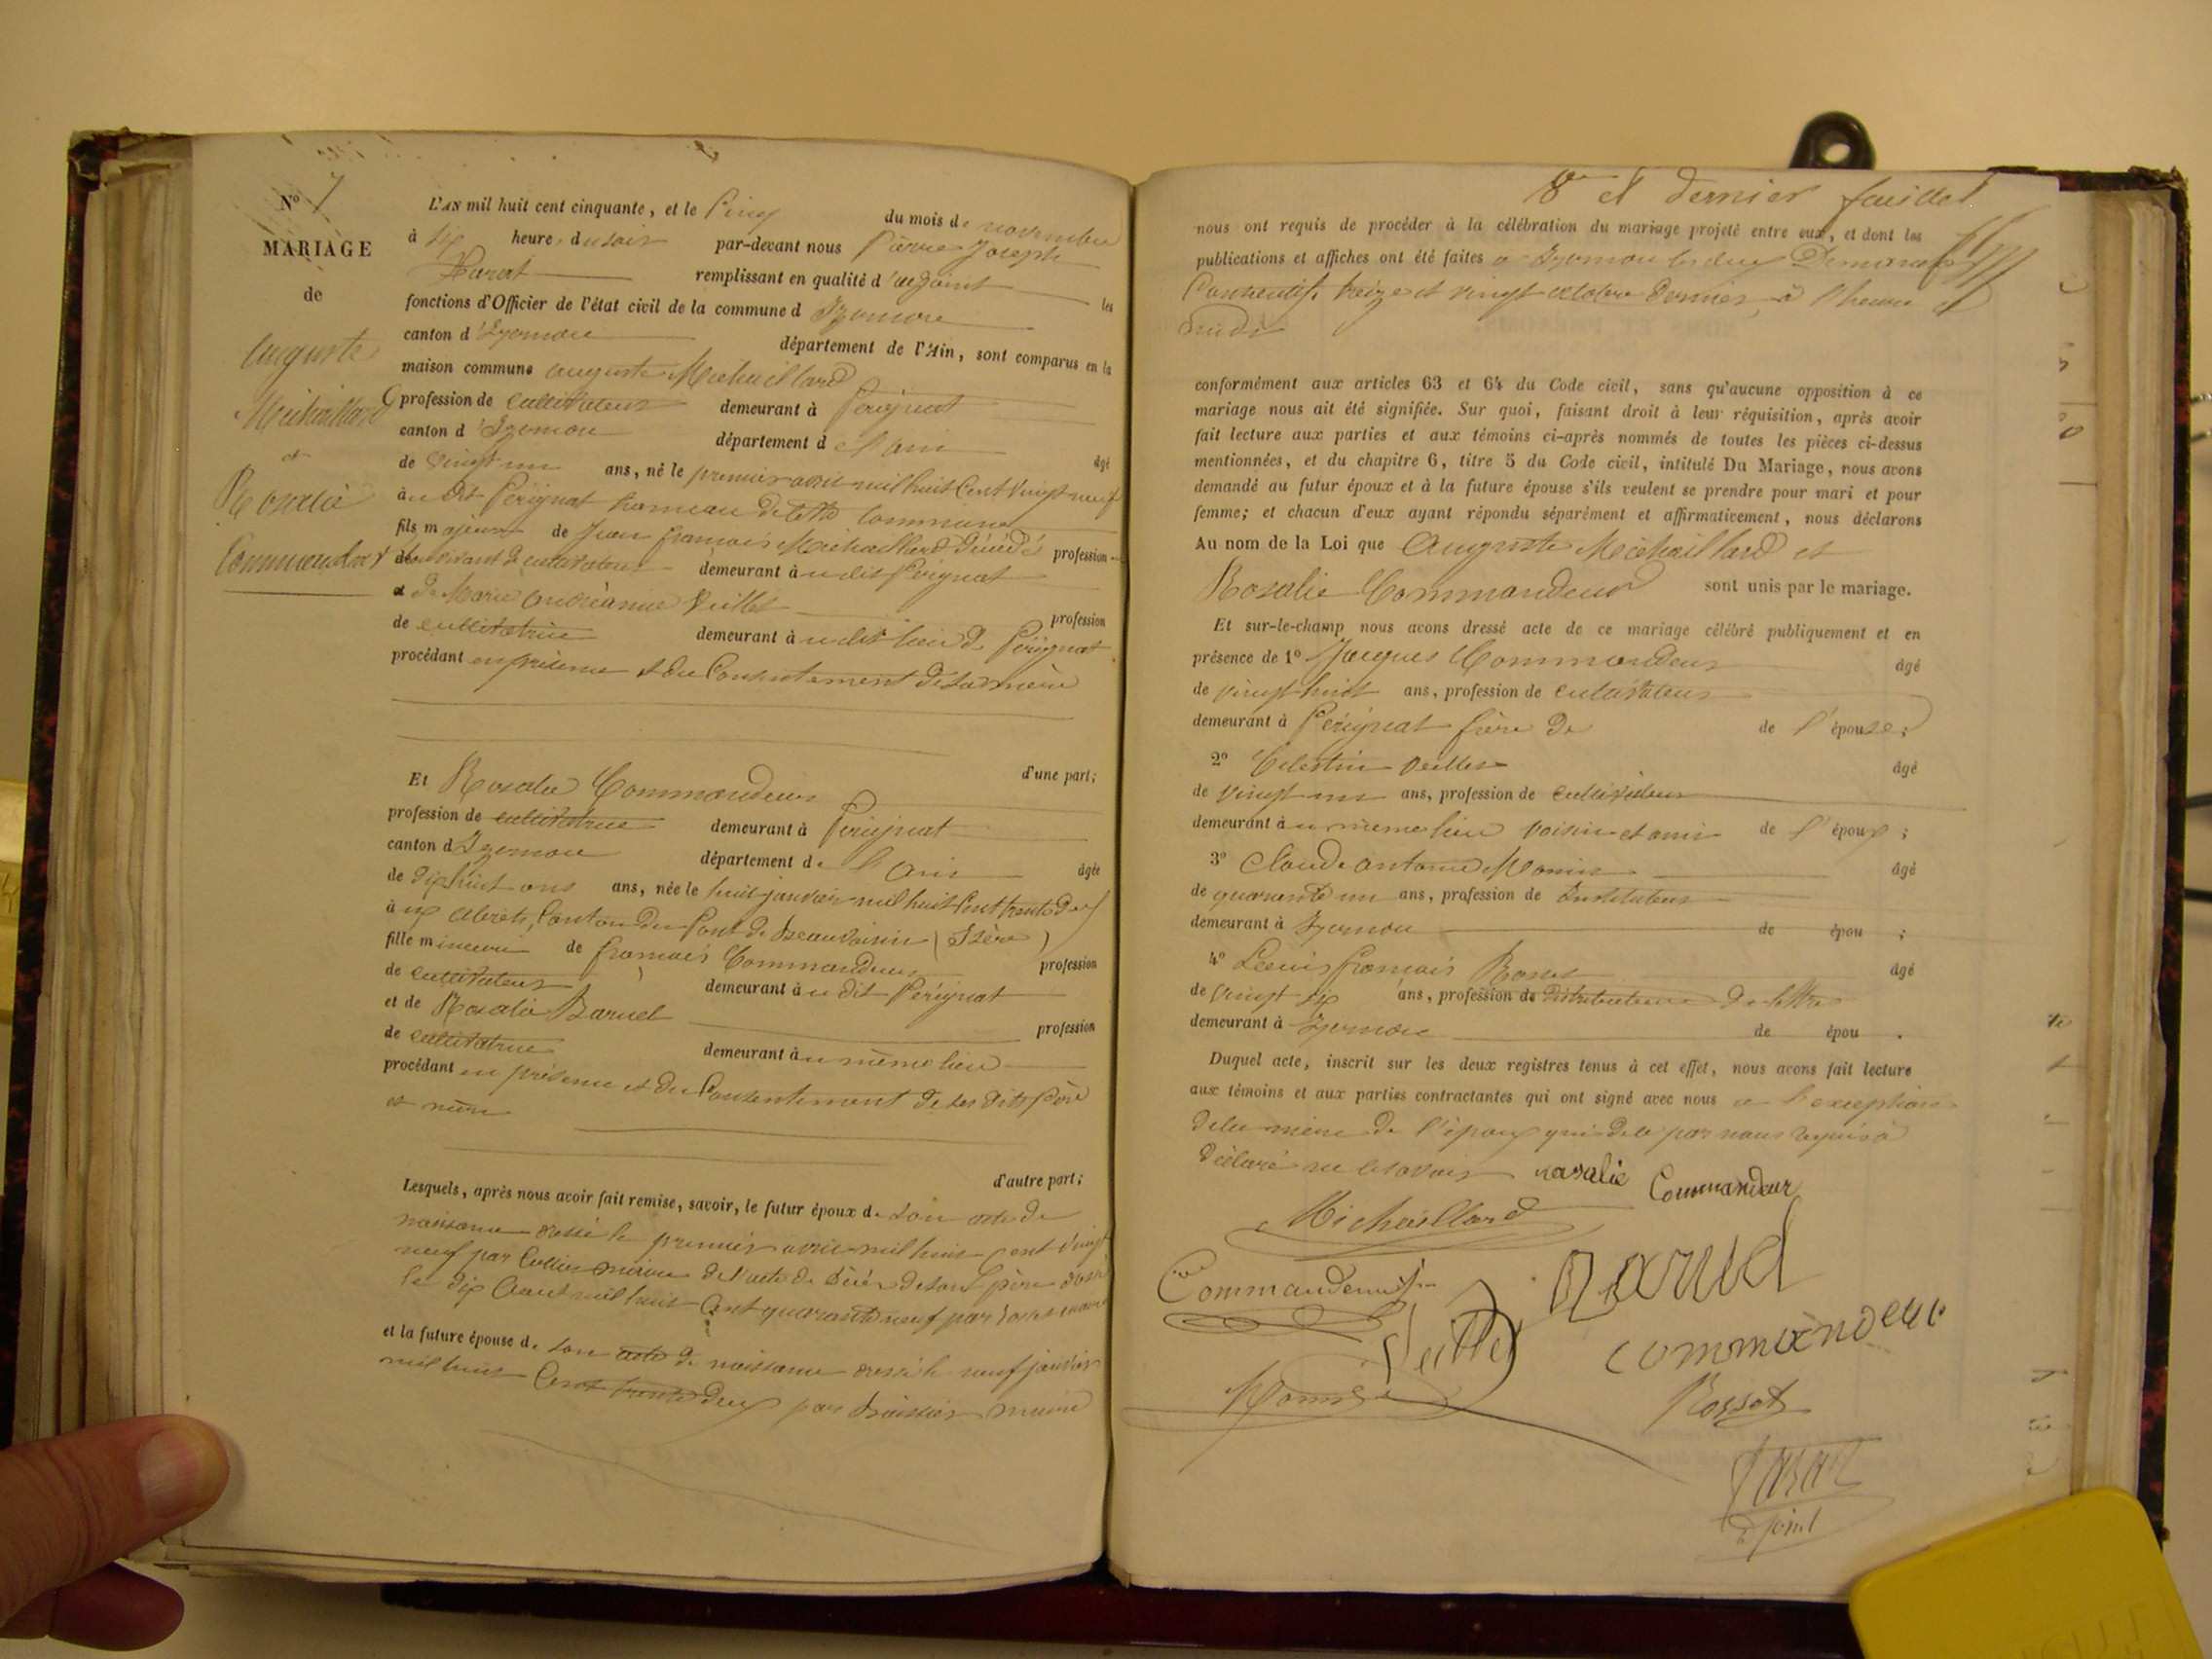 N° 7
MARIAGE
de
Auguste
Michaillard
et
Rosalie
Commandeur
L'AN mil huit cent cinquante, et le Cinq du mois de novembre
à six heure, du soir par-devant nous Pierre Joseph
remplissant en qualité d'adjoint les
fonctions d'Officier de l'état civil de la commune d'Izernore
canton d'Izernore département de l'Ain, sont comparus en la
maison commune auguste Michaillard
profession de cultivateur demeurant à Perignat
canton d'Izernore département de l'ain âgé
de vingt un ans, né le premier avril mil huit Cent Vingt neuf
au dit Perignat hameau de cette Commune
fils majeur de Jean françois Michaillard décédé profession
de vivant cultivateur demeurant au dit Perignat
et de Marie Veillet profession
de cultivatrice demeurant au dit lieu de Perignat
procédant en présence et du Consentement de sa mère
d'une part;
Et Rosalie Commandeur
profession de cultivatrice demeurant à Perignat
canton d'Izernore département de l'Ain âgée
de dix huit ans ans, née le huit janvier mil huit Cent trente deux
aux abrets, Canton du Pont de Beauvoisin (Isère)
fille mineure de françois Commandeur profession
de cultivateur demeurant au dit Perignat
et de Rosalie Baruel profession
de cultivatrice demeurant au même lieu
procédant en présence et du Consentement de ses dits père
et mère
d'autre part;
Lesquels, après nous avoir fait remise, savoir, le futur époux de son acte de
naissance dressé le premier avril mil huit Cent vingt
neuf par maire de l'acte de décès de son père dressé
le dix Août mil huit Cent quarante neuf par maire
et la future épouse de son acte de naissance dressé le neuf janvier
mil huit Cent trente deux par maire
8e et dernier feuillet
nous ont requis de procéder à la célébration du mariage projeté entre eux, et dont les
publications et affiches ont été faites a Izernore les deux Dimanches
Consécutifs treize et vingt octobre dernier, à l'heure de
midi
conformément aux articles 63 et 64 du Code civil, sans qu'aucune opposition à ce
mariage nous ait été signifiée. Sur quoi, faisant droit à leur réquisition, après avoir
fait lecture aux parties et aux témoins ci-après nommés de toutes les pièces ci-dessus
mentionnées, et du chapitre 6, titre 5 du Code civil, intitulé Du Mariage, nous avons
demandé au futur époux et à la future épouse s'ils veulent se prendre pour mari et pour
femme; et chacun d'eux ayant répondu séparément et affirmativement, nous déclarons
Au nom de la Loi que Auguste Michaillard et
Rosalie Commandeur sont unis par le mariage.
Et sur-le-champ nous avons dressé acte de ce mariage célébré publiquement et en
présence de 1° Jacques Commandeur âgé
de vingt huit ans, profession de cultivateur
demeurant à Perignat frère de de l'épouse;
2° Celestin Veillet âgé
de vingt un ans, profession de cultivateur
demeurant au même lieu voisin et ami de l'époux;
3° Claude antoine Monin âgé
de quarante un ans, profession de Instituteur
demeurant à Izernore de épou ;
4° Louis françois Rosset âgé
de vingt six ans, profession de distributeur de lettre
demeurant à Izernore de épou .
Duquel acte, inscrit sur les deux registres tenus à cet effet, nous avons fait lecture
aux témoins et aux parties contractantes qui ont signé avec nous a l'exception
de la mère de l'époux qui de ce par nous requise a
déclaré ne le savoir rosalie Commandeur
Michaillard
Commandeur Baruel
Veillet commandeur
Monin Rosset
adjoint